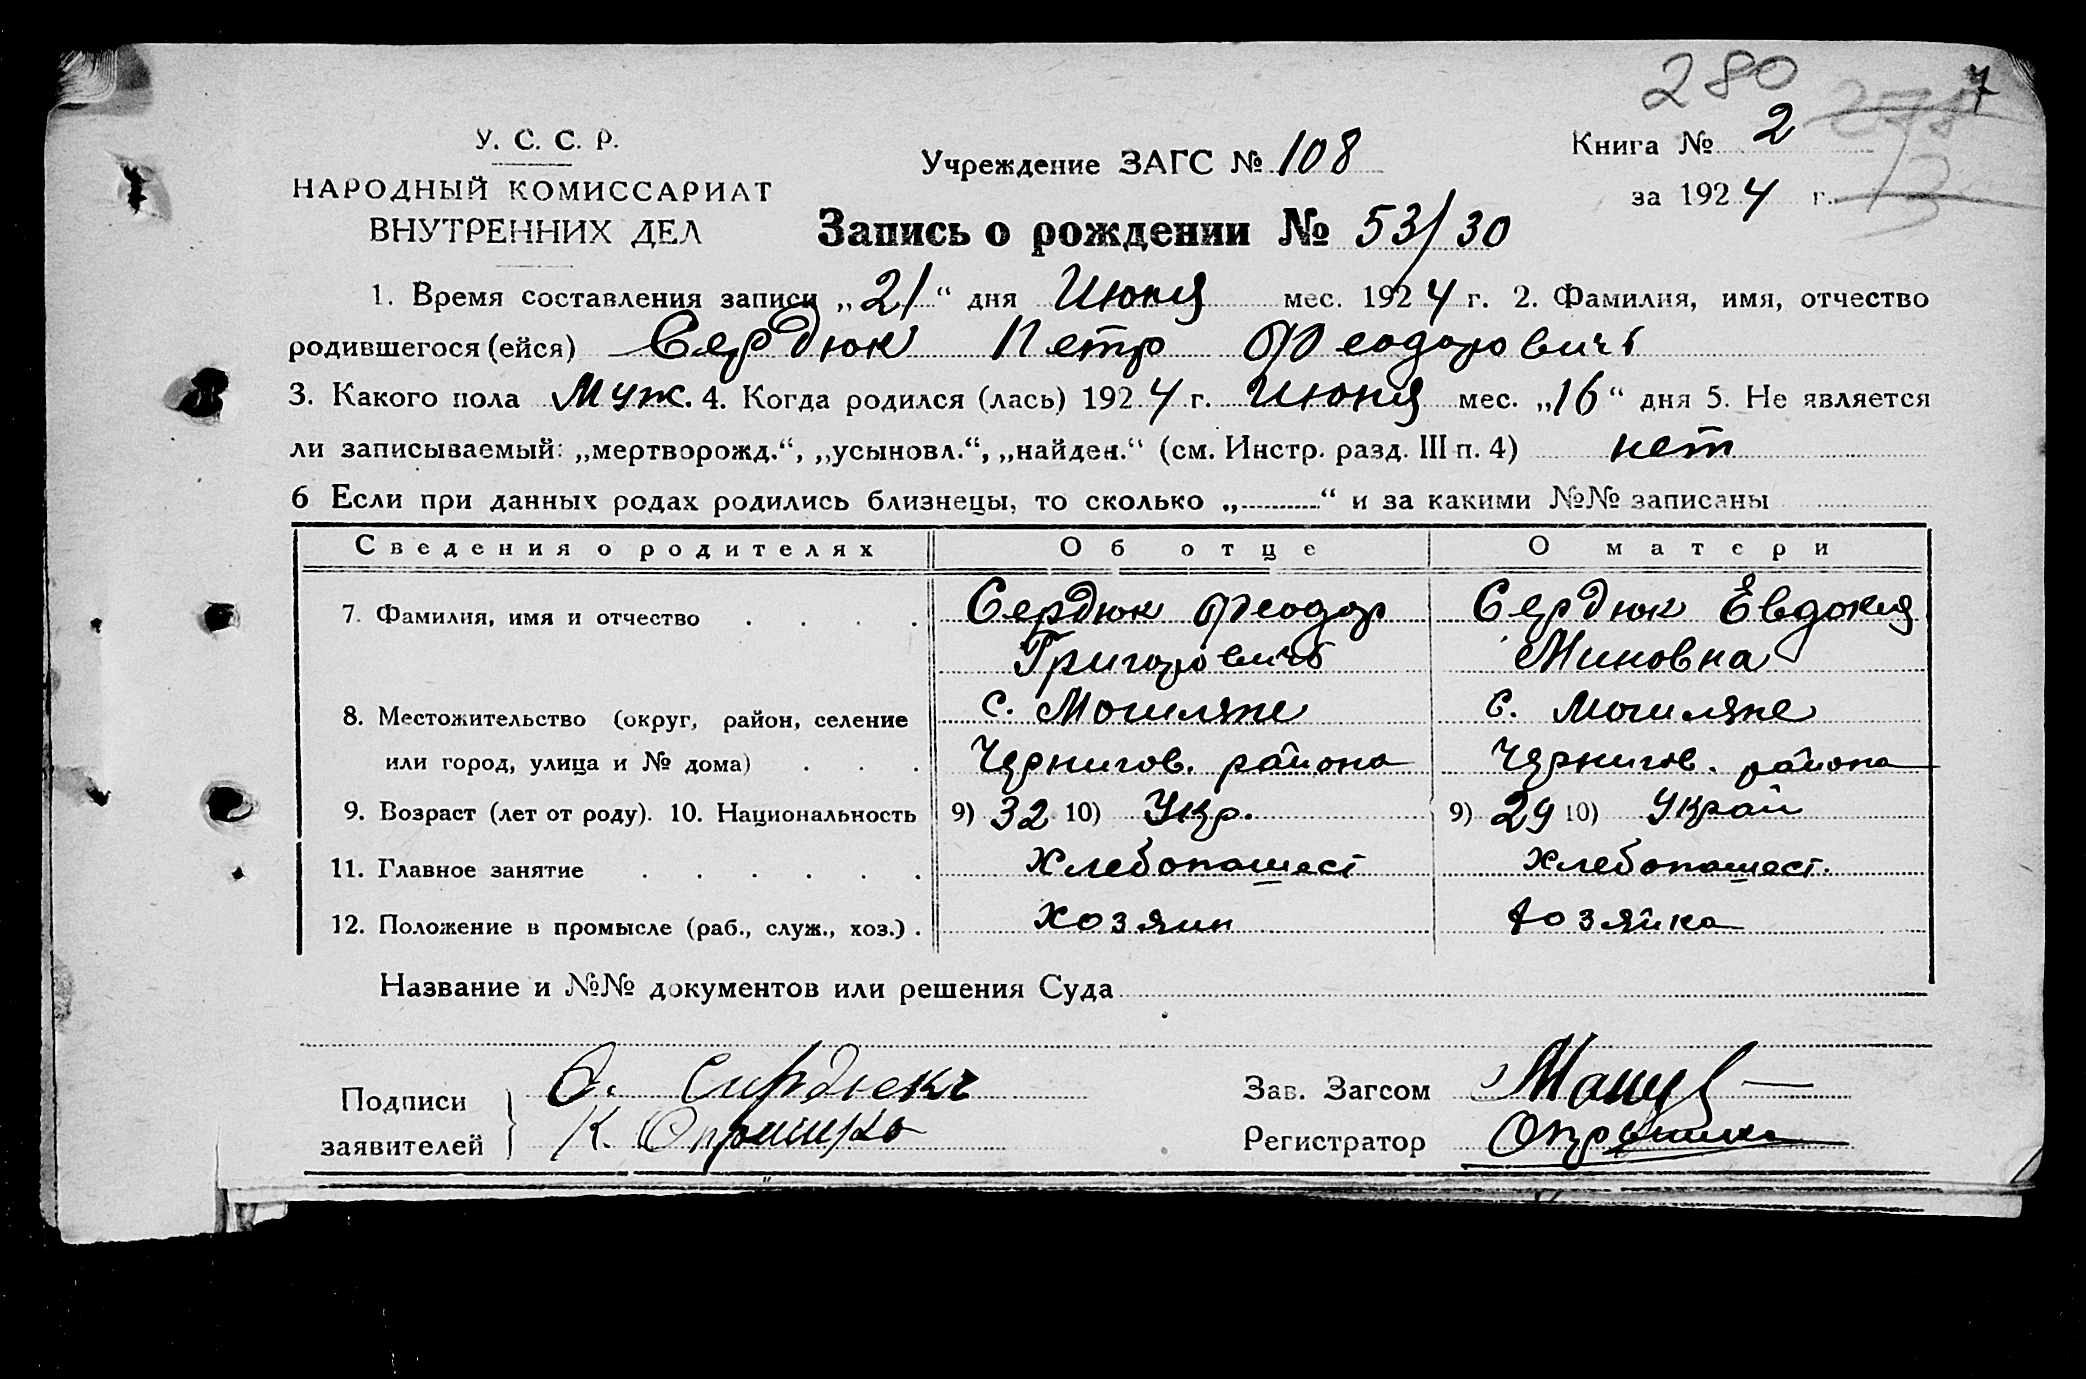 280
7
У. С. С. Р.
НАРОДНЫЙ КОМИССАРИАТ
ВНУТРЕННИХ ДЕЛ
Учреждение ЗАГС № 108
Книга № 2
за 1924 г.
Запись о рождении № 53/30
1. Время составления записи „21“ дня Июня мес. 1924 г. 2. Фамилия, имя, отчество
родившегося (ейся) Сердюк Петр Феодоровичъ
3. Какого пола Муж. 4. Когда родился (лась) 1924 г. Июня мес. „16“ дня 5. Не является
ли записываемый: „мертворожд.“, „усыновл.“, „найден.“ (см. Инстр. разд. III п. 4) нет
6 Если при данных родах родились близнецы, то сколько „..........“ и за какими №№ записаны
Сведения о родителях Об отце О матери
7. Фамилия, имя и отчество . . . . Сердюк Феодор Сердюк Евдокия
Григоровичъ Миновна
8. Местожительство (округ, район, селение с. Могиляне с. Могиляне
или город, улица и № дома) . . . Чернигов. района Чернигов. района
9. Возраст (лет от роду). 10. Национальность 9) 32 10) Укр. 9) 29 10) Украй
11. Главное занятие . . . . . . Хлебопашест Хлебопашест.
12. Положение в промысле (раб., служ., хоз.) . Хозяин Хозяйка
Название и №№ документов или решения Суда
Подписи
заявителей
К.
Зав. Загсом
Регистратор